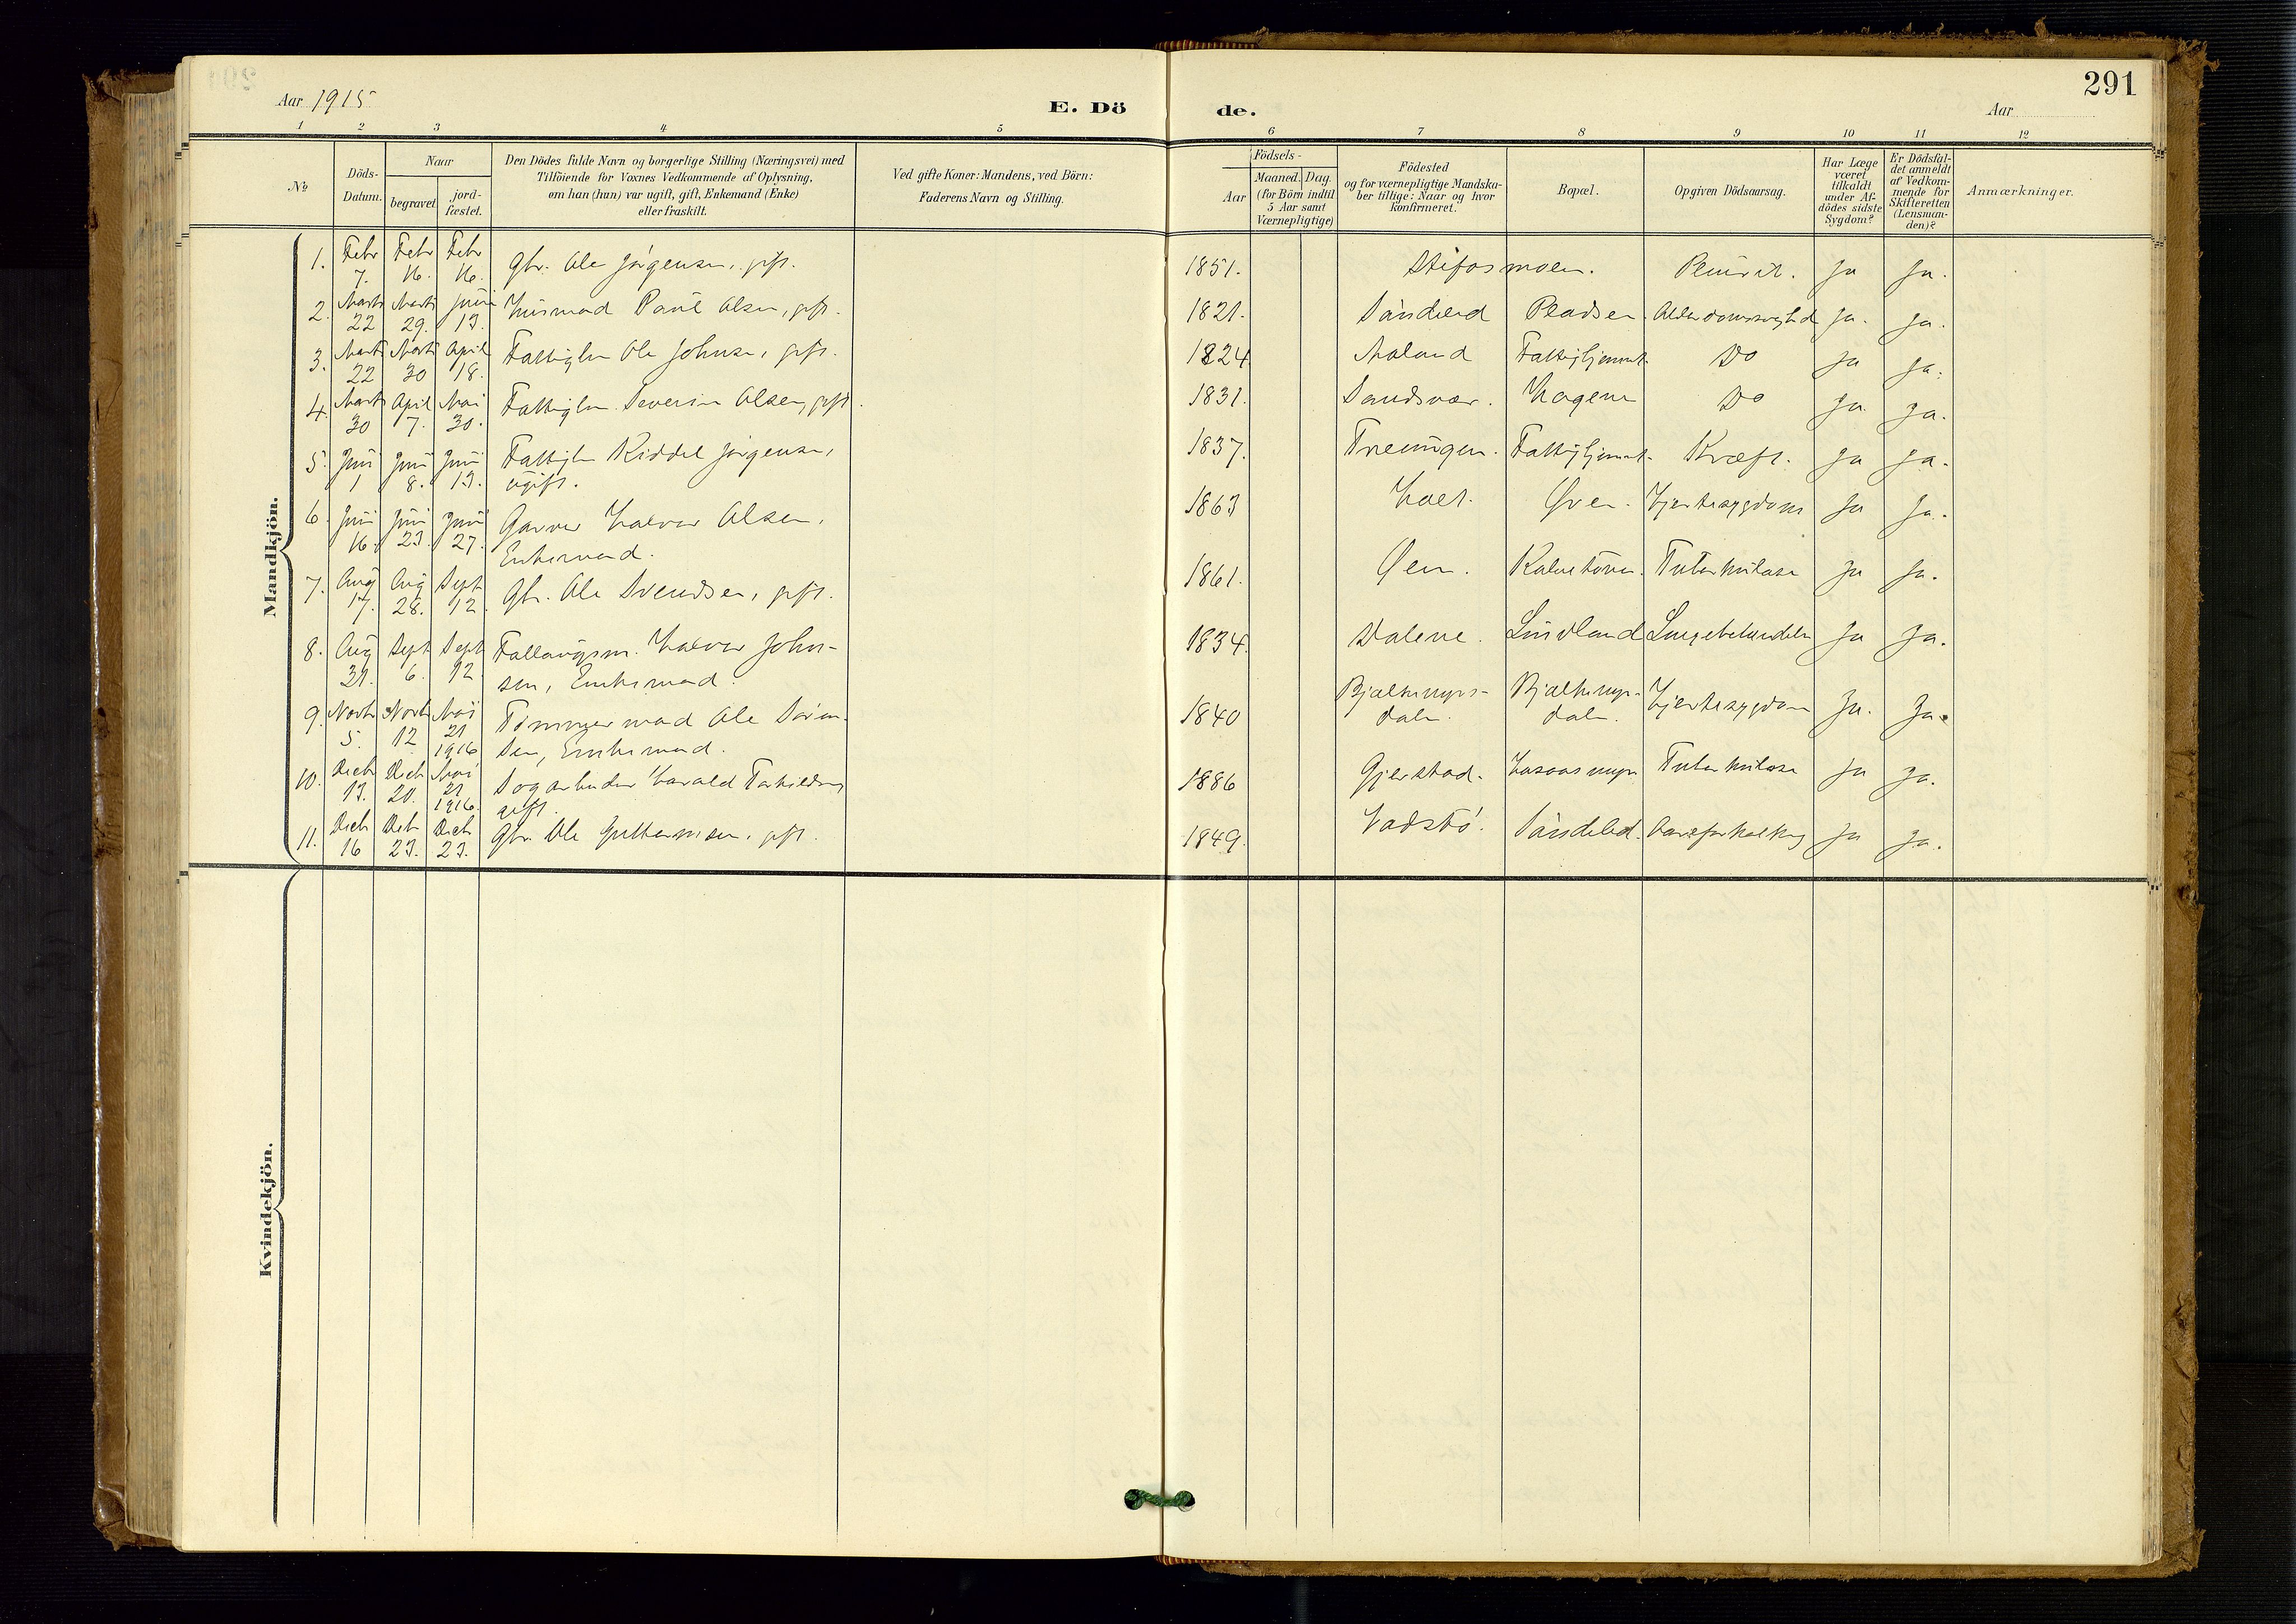 291
Aar 1915
E. Döde.
Aar
1 2 3 4 5 6 7 8 9 10 11 12
№
Döds-
Datum.
Naar
begravet
jord-
fæstet.
Den Dödes fulde Navn og borgerlige Stilling (Næringsvei) med
Tilföiende for Voxnes Vedkommende af Oplysning,
om han (hun) var ugift, gift, Enkemand (Enke)
eller fraskilt.
Ved gifte Koner: Mandens, ved Börn:
Faderens Navn og Stilling.
Födsels-
Aar
Maaned. Dag.
(for Börn indtil
5 Aar samt
Værnepligtige)
Födested
og for værnepligtige Mandska-
ber tillige: Naar og hvor
konfirmeret.
Bopæl.
Opgiven Dödsaarsag.
Har Læge
været
tilkaldt
under Af-
dödes sidste
Sygdom?
Er Dödsfal-
det anmeldt
af Vedkom-
mende for
Skifteretten
(Lensman-
den)?
Anmærkninger.
Mandkjön.
1. Febr 7. Febr 16. Febr 16. Gbr. Ole Jörgensen, gift. 1851. Stifosmoen. Ja Ja.
2. Marts 22 Marts 29. Juni 13. Husmand Paul Olsen, gift. 1821. Söndeled Pladsen Alderdomssvaghed Ja. Ja.
3. Marts 22 Marts 30 April 18. Fattiglem Ole Johnsen, gift. 1824 Moland Fattighjemmet. Do Ja Ja.
4. Marts 30 April 7. Mai 30. Fattiglem Severin Olsen, gift. 1831. Sandsvær. Hagene Do Ja. Ja.
5. Juni 1 Juni 8. Juni 13. Fattiglem Kiddel Jörgensen,
ugift. 1837. Treungen. Fattighjemmet. Kræft. Ja Ja.
6. Juni 16. Juni 23. Juni 27. Garver Halvor Olsen,
Enkemand. 1863 Holt. Hjertesygdom Ja Ja.
7. Aug 17. Aug 28. Sept 12. Gbr. Ole Svendsen, gift. 1861. Öen. Tuberkulose Ja Ja.
8. Aug 31. Sept 6. Sept 12. Halvor John-
sen, Enkemand. 1834. Dalene. Lindland Lungebetændelse Ja Ja.
9. Novbr 5. Novbr 12 Mai 21 1916 Tömmermand Ole Sören-
sen, Enkemand. 1840 Hjertesygdom Ja. Ja.
10. Decb 13. Decb 20. Mai 21 1916. Sagarbeider Harald Terkildsen
gift. 1886 Gjerstad. Tuberkulose Ja Ja.
11. Decb 16 Decb 23. Decb 23. Gbr. Ole Guttormsen, gift. 1849. Vadstö. Söndeled. Aareforkalkng Ja Ja.
Kvindekjön.